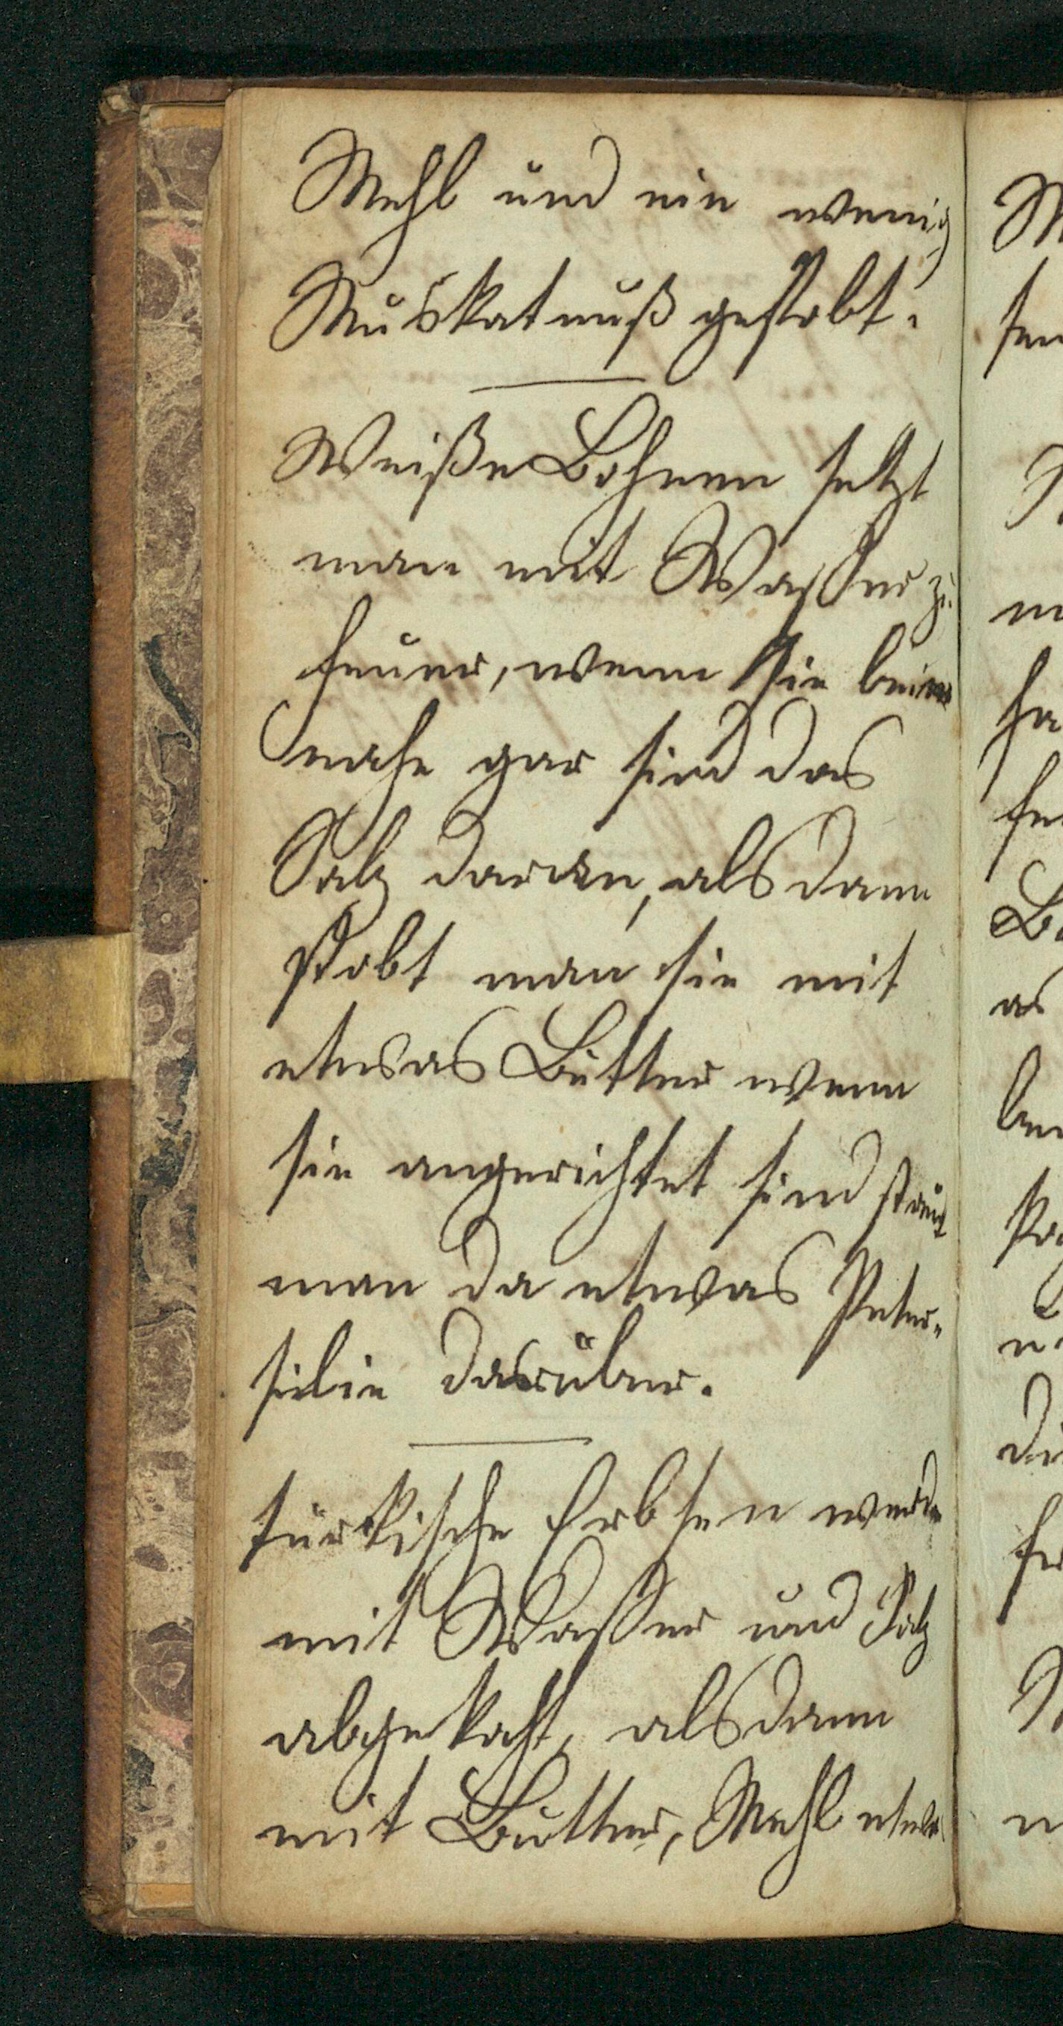 Mehl und ein wenig
Muskatnuß gestobt.
Weiße Bohnen setzt
man mit Wasser zu
Feuer, wenn sie bei
nahe gar sind das
Salz daran, als dann
stobt man sie mit
etwas Butter wenn
sie angerichtet sind streut
man da etwas Peter-
silie darüber.
türkische Erbsen werden
mit Wasser und Salz
abgekocht, alsdann
mit Butter, Mehl etwas